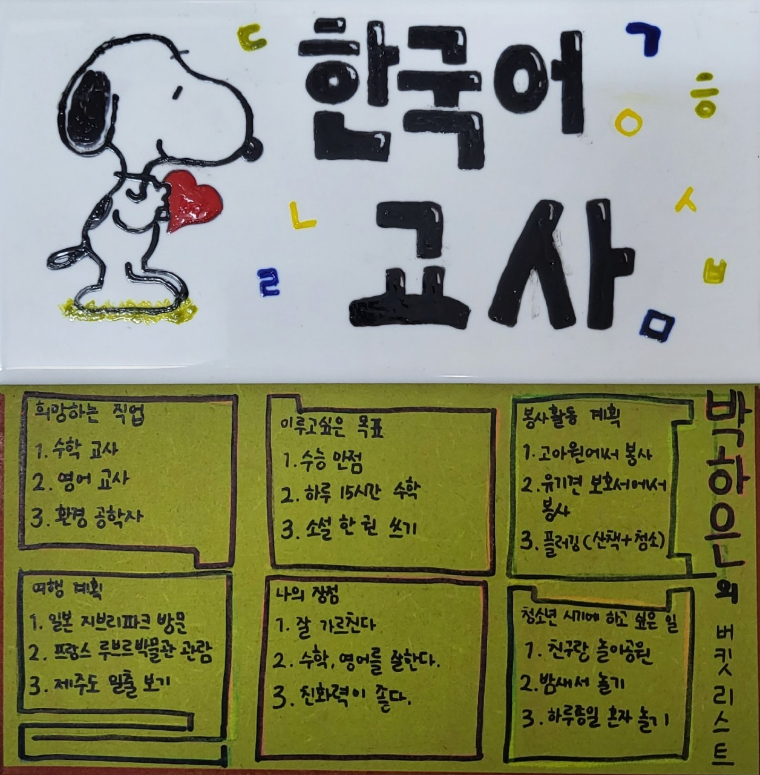 한국어
교사
ㄷ
ㄱ
ㅎ
ㅇ
ㄴ
ㅅ
ㄹ
ㅂ
ㅁ
박하은의 버킷리스트
희망하는 직업
1. 수학 교사
2. 영어 교사
3. 환경 공학자
이루고싶은 목표
1. 수능 만점
2. 하루 15시간 수학
3. 소설 한 권 쓰기
봉사활동 계획
1. 고아원에서 봉사
2. 유기견 보호서에서
봉사
3. 플러깅(산책+청소)
여행 계획
1. 일본 지브리파크 방문
2. 프랑스 루브르박물관 관람
3. 제주도 일출 보기
나의 장점
1. 잘 가르친다
2. 수학, 영어를 잘한다.
3. 친화력이 좋다.
청소년 시기에 하고 싶은 일
1. 친구랑 놀이공원
2. 밤새서 놀기
3. 하루종일 혼자 놀기